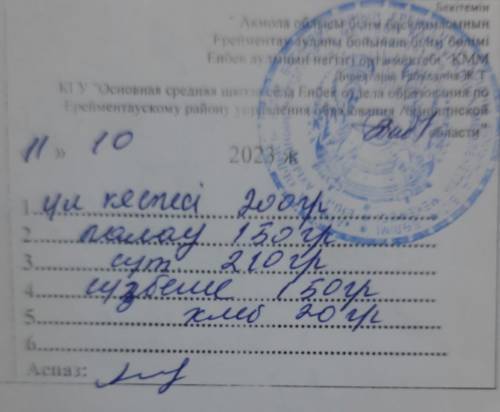 Бекітемін
"Ақмола облысы білім басқармасының
Ерейментау ауданы бойынша білім бөлімі
Еңбек ауылының негізгі орта мектебі" КММ
Директоры Ж.Т.
КГУ "Основная средняя школа села Еңбек отдела образования по
Ерейментаускому району управления образования Акмолинской
области"
11 » 10 2023 ж
1 ұл кеспесі 200гр
2 палау 150гр
3 сүт 210гр
4 сүзбеше 150гр
5 хлеб 20гр
6
Аспаз: